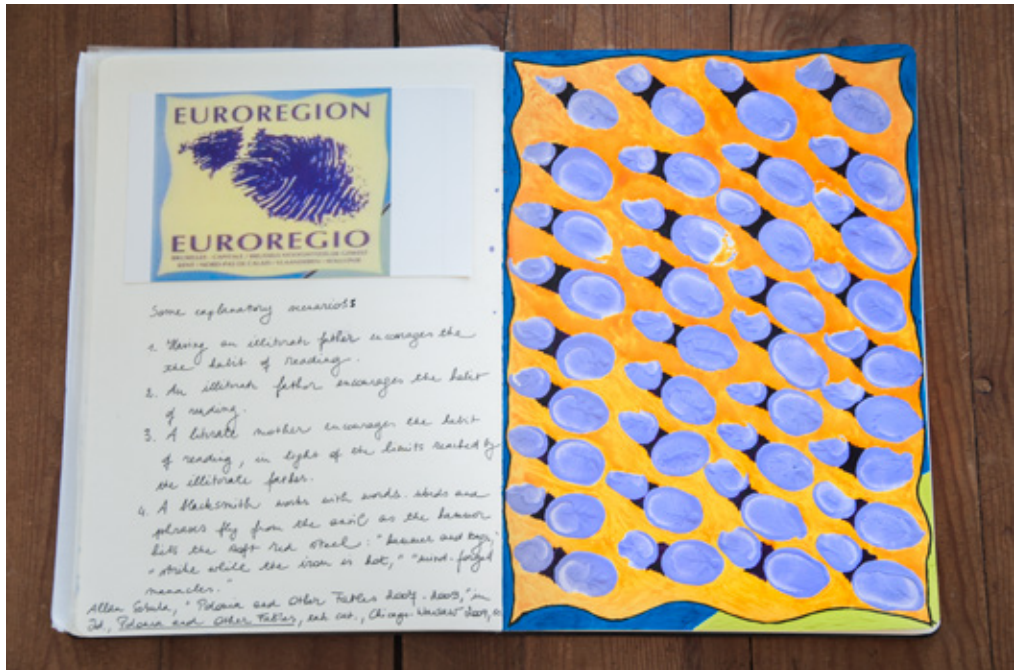 EUROREGION
EUROREGIO
BRUXELLES - CAPITALE / BRUSSELS HOOFDSTEDELIJK GEWEST
KENT - NORD-PAS DE CALAIS - VLAANDEREN - WALLONIE
Some explanatory scenarios:
1. Having an illiterate father encorages the
the habit of reading.
2. An illiterate father encorages the habit
of reading.
3. A literate mother encorages the habit
of reading, in light of the limits reached by
the illiterate father.
4. A blacksmith works with words. Words and
phrases fly from the anvil as the hammer
hits the soft red steel: "hammer and tongs,"
"strike while the iron is hot," "mind-forged
manacles."
Allan Sekula, "Polonia and Other Fables 2007-2009," in
Id., Polonia and Other Fables, exh cat., Chicago-Warsaw 2009,